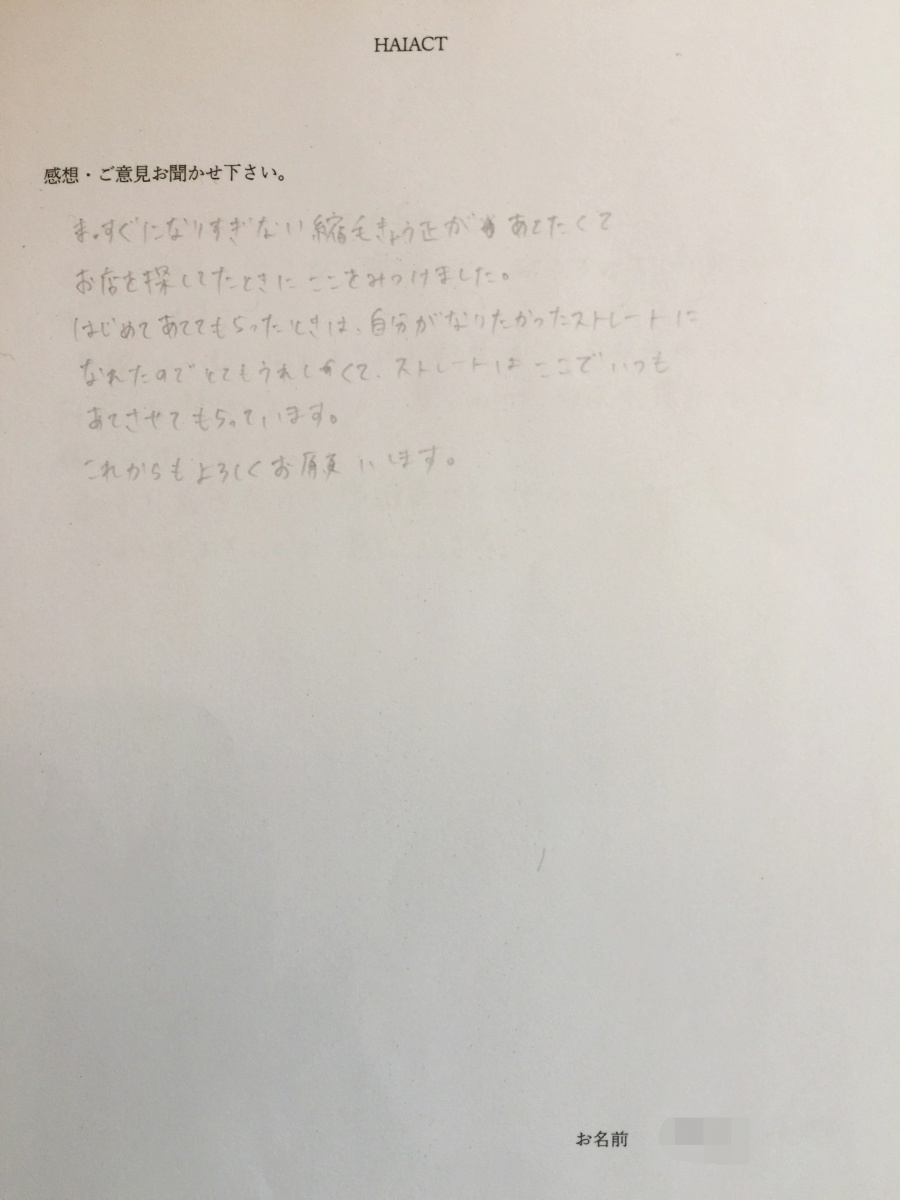 HAIACT
感想・ご意見お聞かせ下さい。
まっすぐになりすぎない縮毛きょう正が あてたくて
お店を探してたときに ここをみつけました。
はじめてあててもらったときは、自分がなりたかったストレートに
なれたのでとてもうれしくて、ストレートは ここで いつも
あてさせてもらっています。
これからもよろしくお願いします。
お名前